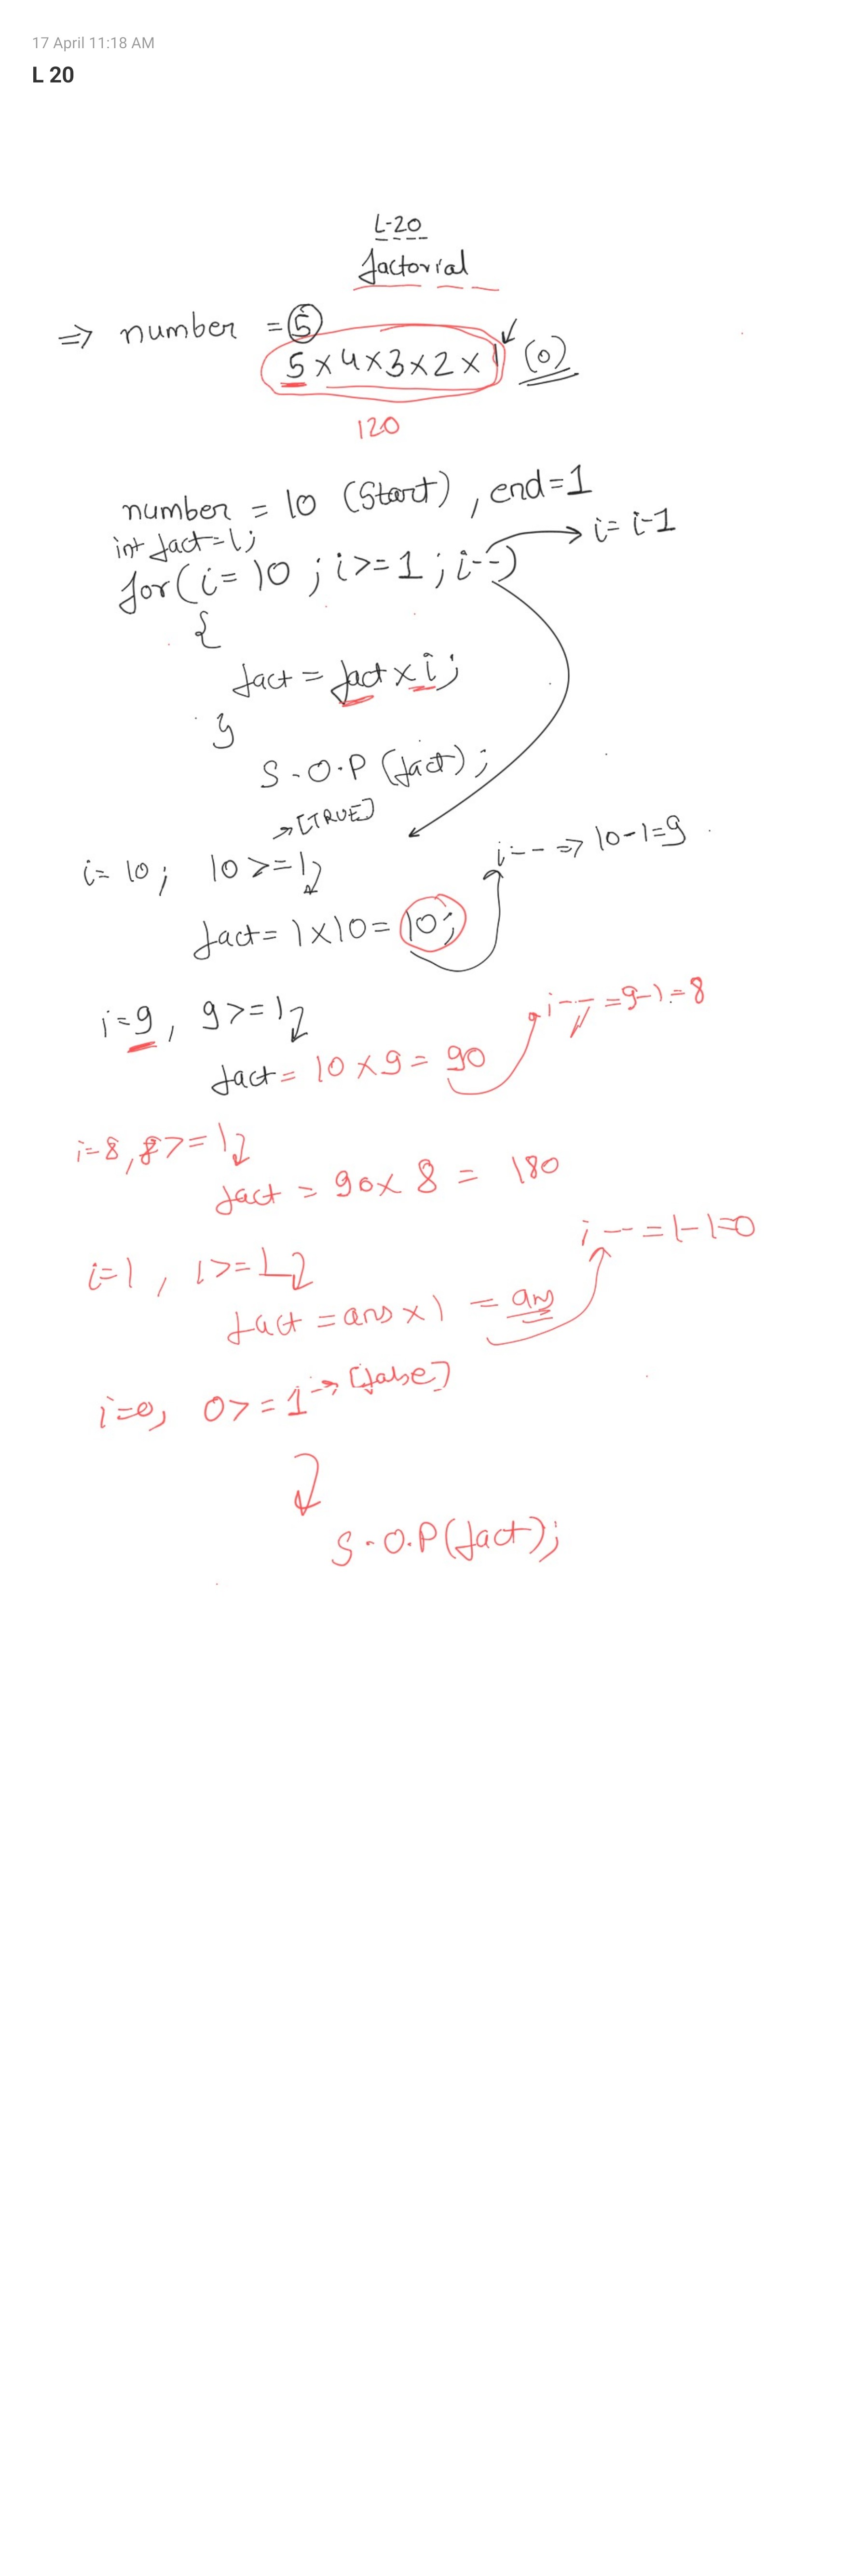 17 April 11:18 AM
L 20
L-20
factorial
=> number = 5
5 x 4 x 3 x 2 x 1 (0)
120
number = 10 (Start), end=1
int fact=1;
i= i-1
for(i= 10 ; i>= 1 ; i--)
{
fact = fact x i;
}
S.O.P (fact);
→[TRUE]
i= 10; 10 >=1
i-- => 10-1=9
fact= 1x10= 10;
i=9, 9>=1
i-- =9-1=8
fact= 10 x 9= 90
i=8, 8>=1
fact = 90x 8 = 180
i-- =1-1=0
i=1, 1>=1
fact =ans x 1 = ans
i=0, 0>=1→[false]
S.O.P(fact);